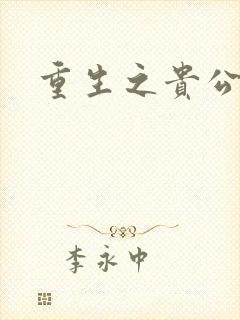 重生之貴公
李永中